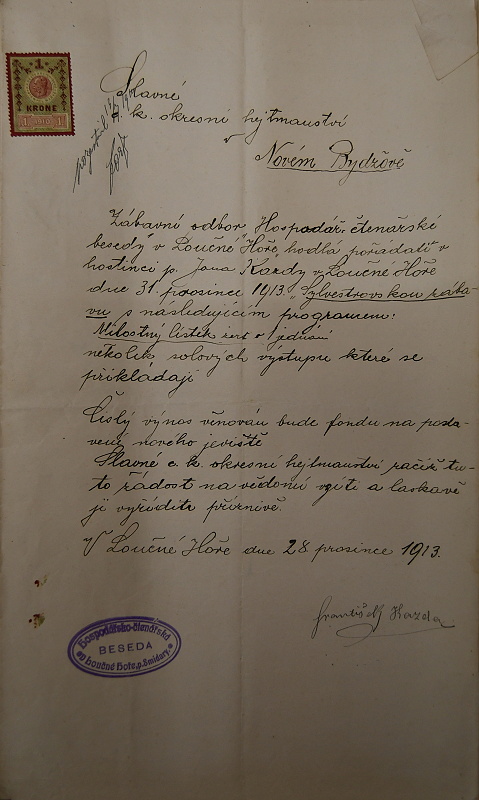 1
KRONE
1 1
Slavné
c. k. okresní hejtmanství
v
Novém Bydžově
Zábavní odbor „Hospodář. čtenářské
besedy" v Loučné Hoře, hodlá pořádati v
hostinci p. Jana Kazdy v Loučné Hoře
dne 31. prosince 1913 „Sylvestrovskou zába-
vu s následujícím programem:
Milostný lístek žert o 1 jednání
několik solových výstupu které se
přikládají
Čistý výnos věnován bude fondu na posta-
vení nového jeviště
Slavné c. k. okresní hejtmanství račiž tu-
to žádost na vědomí vzíti a laskavě
ji vyříditi příznivě.
V Loučné Hoře dne 28 prosince 1913.
František Kazda
Hospodářsko-čtenářská
BESEDA
v Loučné Hoře, p. Smidary.